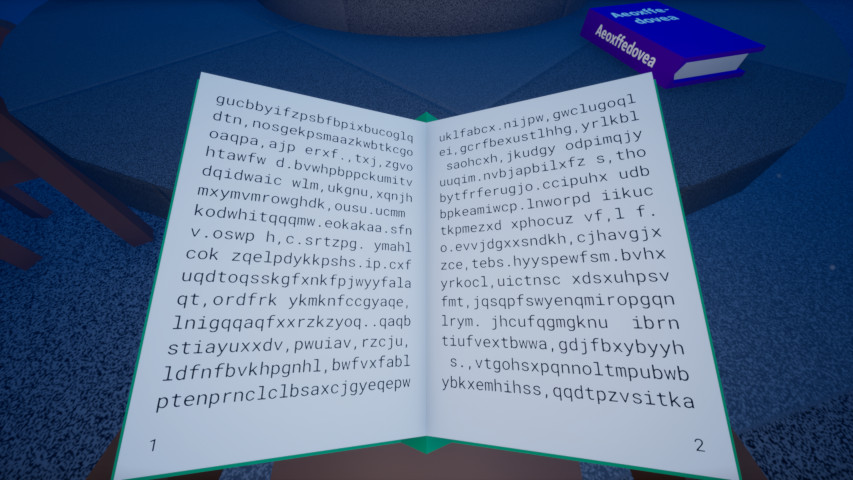 gucbbyifzpsbfbpixbucoglq
dtn,nosgekpsmaazkwbtkcgo
oaqpa,ajp erxf.,txj,zgvo
htawfw d.bvwhpbppckumitv
dqidwaic wlm,ukgnu,xqnjh
mxymvmrowghdk,ousu.ucmm
kodwhitqqqmw.eokakaa.sfn
v.oswp h,c.srtzpg. ymahl
cok zqelpdykkpshs.ip.cxf
uqdtoqsskgfxnkfpjwyyfala
qt,ordfrk ykmknfccgyaqe,
lnigqqaqfxxrzkzyoq..qaqb
stiayuxxdv,pwuiav,rzcju,
ldfnfbvkhpgnhl,bwfvxfabl
ptenprnclclbsaxcjgyeqepw
1
uklfabcx.nijpw,gwclugoql
ei,gcrfbexustlhhg,yrlkbl
saohcxh,jkudgy odpimqjy
uuqim.nvbjapbilxfz s,tho
bytfrferugjo.ccipuhx udb
bpkeamiwcp.lnworpd iikuc
tkpmezxd xphocuz vf,l f.
o.evvjdgxxsndkh,cjhavgjx
zce,tebs.hyyspewfsm.bvhx
yrkocl,uictnsc xdsxuhpsv
fmt,jqsqpfswyenqmiropgqn
lrym. jhcufqgmgknu ibrn
tiufvextbwwa,gdjfbxybyyh
s.,vtgohsxpqnnoltmpubwb
ybkxemhihss,qqdtpzvsitka
2
Aeoxffe-
dovea
Aeoxffedovea